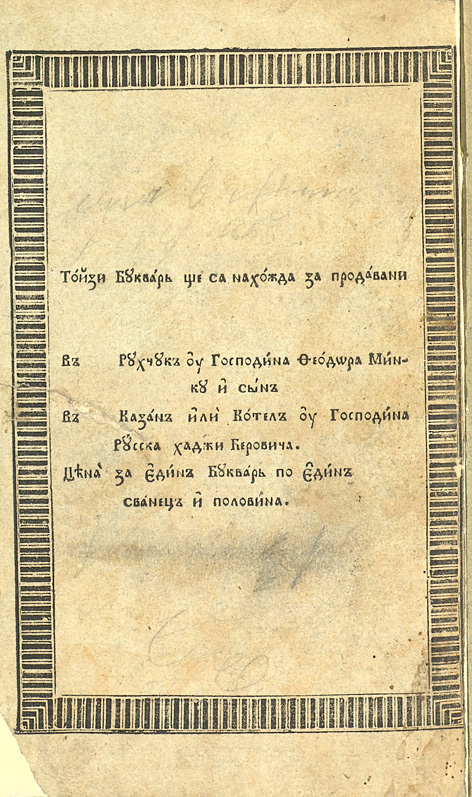 То́йзи Бꙋква́рь ще са нахо́жда за прода́вани
въ Рꙋхчꙋкъ ᲂу҆ Господи́на Ѳео́дѡра Ми́н-
кꙋ и҆ сы́нъ
въ Каза́нъ и҆лѝ Ко́телъ ᲂу҆ Господи́на
Рꙋ́сска хаджи Беровича.
Цѣна̀ за є҆ди́нъ Бꙋква́рь по є҆ди́нъ
сва́нецъ и҆ полови́на.